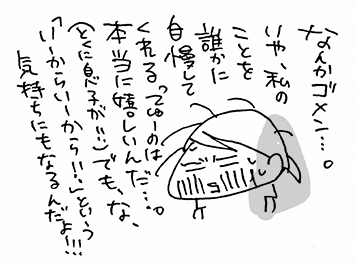 なんかゴメン…。
いや、私の
ことを
誰かに
自慢して
くれるってゆーのは
本当に嬉しいんだ…。
(とくに息子が!!)でも、な、
「いーからいーから!!」という
気持ちにもなるんだよ!!!